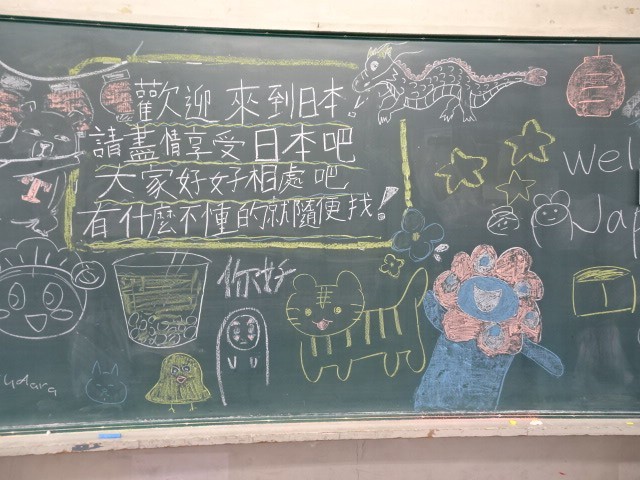 歡迎 來到日本!
請盡情享受日本吧
大家好好相處吧
有什麼不懂的就隨便找!
你好
Wel
T